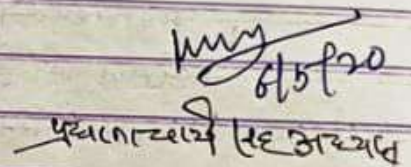 6/5/20
प्रधानाचार्य सह अध्यक्ष